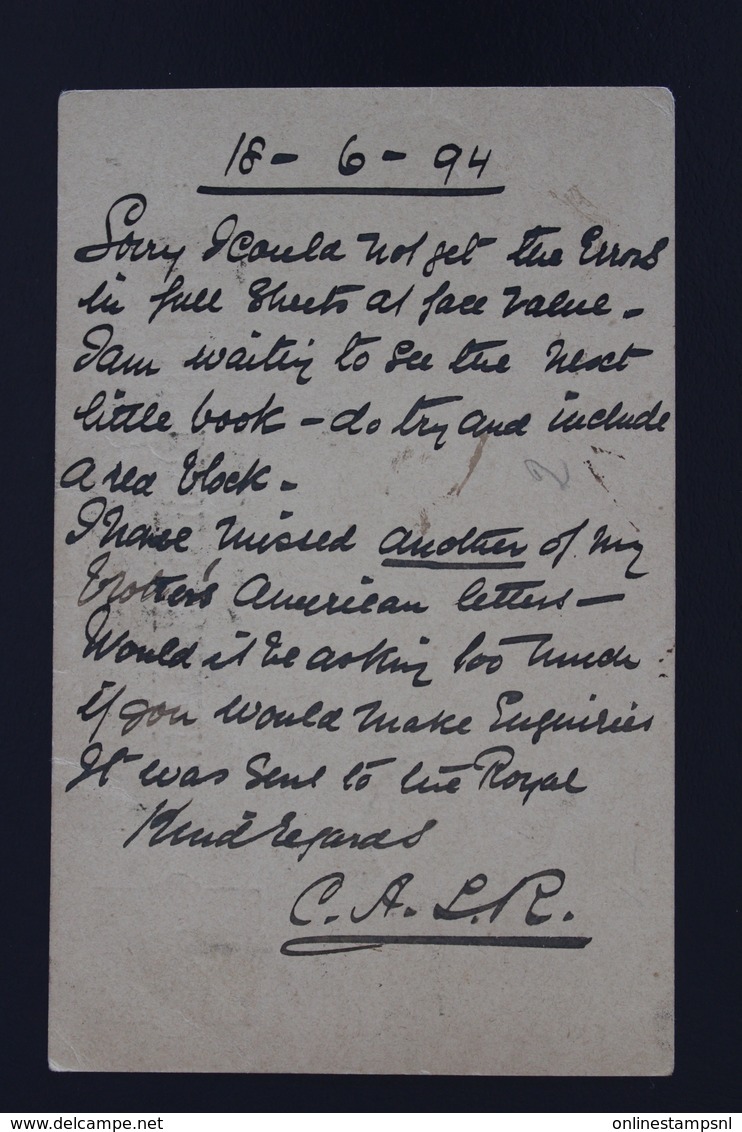 18 - 6 - 94
Sorry I could not get the Errors
in full Sheets at face value -
I am waiting to See the next
little book - do try and include
a red block -
I have missed another of my
brother's American letters -
Would it be asking too much
if you would make Enquiries
It was Sent to the Royal
Kind regards
C. A. L. R.
delcampe.net
onlinestampsnl